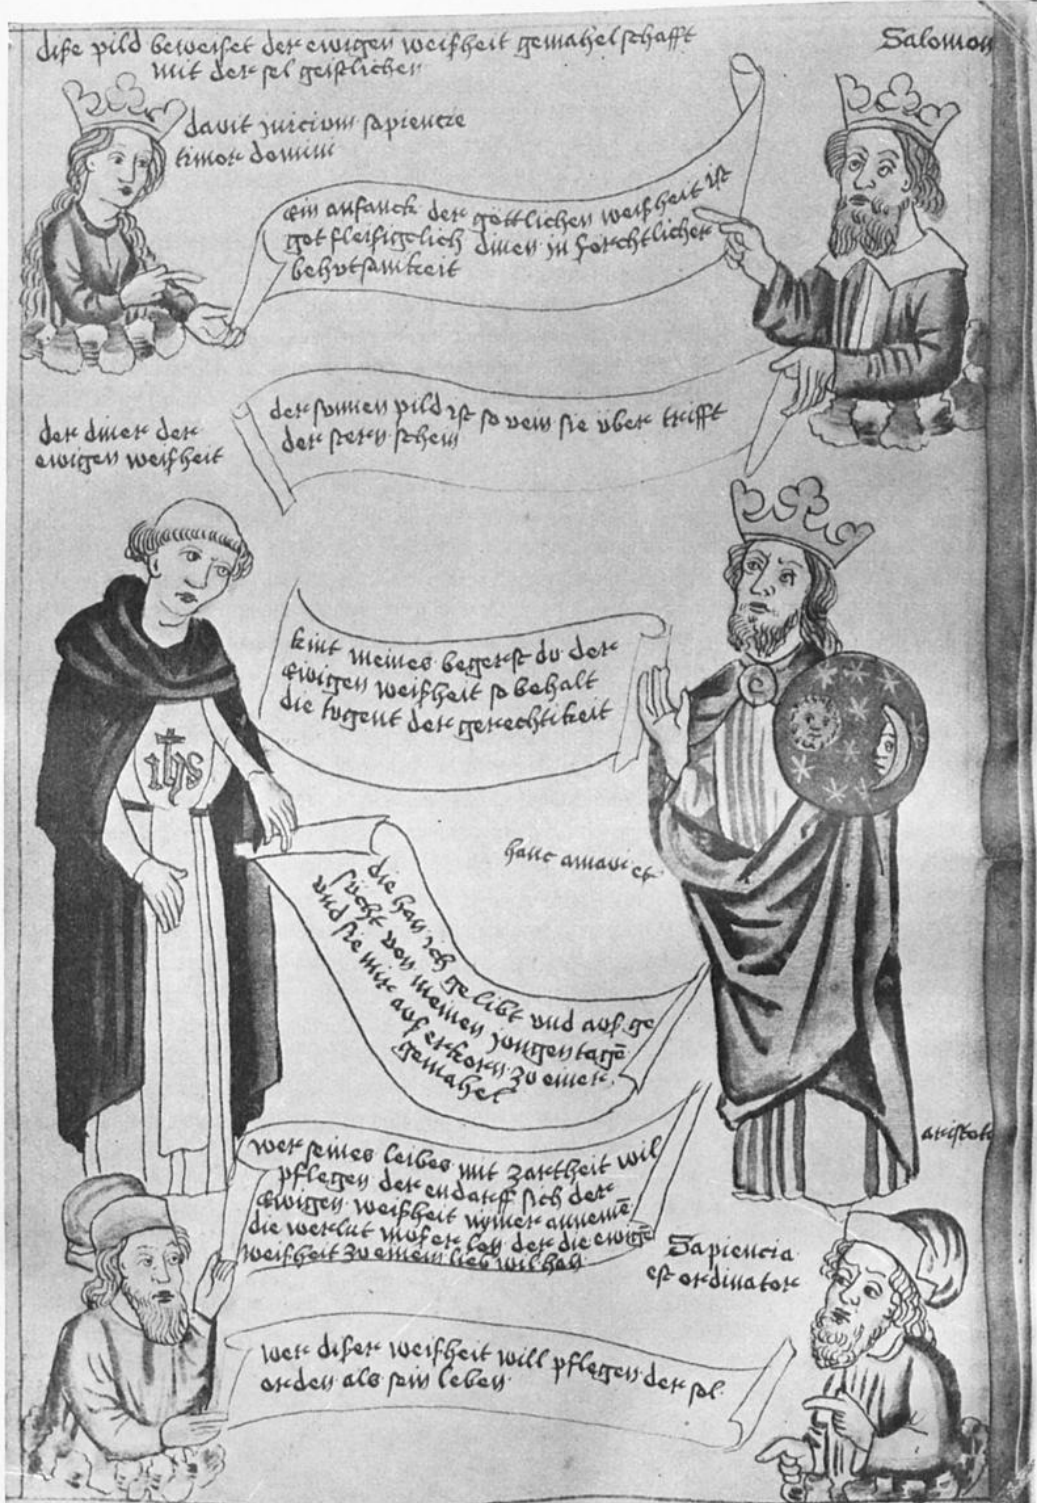 dise pild beweiset der ewigen weisheit gemahelschafft
mit der sel geistlichen
Salomon
davit inicium sapiencie
timor domini
Ein anfanck der göttlichen weisheit ist
got fleisigclich dinen in forchtlicher
behutsamkeit
der sunnen pild ist so vein sie über trifft
der stern schein
der diner der
ewigen weisheit
kint meines begerst du der
Ewigen weisheit so behalt
die tugent der gerechtikeit
ihs
hanc amavi et
die han ich gelibt und aus ge
sücht von meinen jungen tagē
und sie mir aus erkorn zu einer
gemahel
aristot
wer seines leibes mit zartheit wil
pflegen der en darff sich der
Ewigen weisheit nymer annemē
die werlut muser lan der die ewigē
weisheit zu einem lieb wil han
Sapiencia
est ordinator
wer diser weisheit will pflegen der sol
orden als sein leben